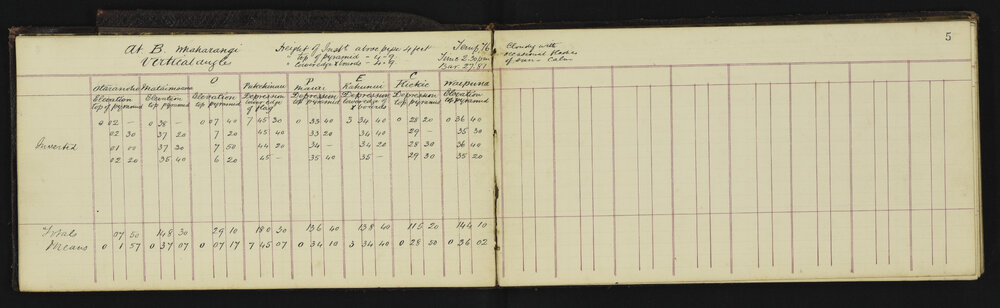 5
At B. Maharangi
Vertical angles
Height of Inst above pipe 4 feet
" top of pyramid - 4.9
" lower edge boards - 4.9
Temp. 76
Time 2.30pm
Bar 29.91
Cloudy with
occasional flashes
of sun - Calm
O P E C
Otarancho Mataimoana Pukekiwi Kahumui Flockie Waipuna
Elevation Elevation Elevation Depression Depression Depression Depression Elevation
top of pyramid top pyramid top pyramid lower edge of flag top pyramid lower edge of boards top pyramid top pyramid
0 02 – 0 38 – 0 07 40 7 45 30 0 33 40 3 34 40 0 28 20 0 36 40
02 30 37 20 7 20 45 40 33 20 34 40 29 – 35 30
Inverted 01 00 37 30 7 50 44 20 34 – 34 20 28 30 36 40
02 20 35 40 6 20 45 – 35 40 35 – 29 30 35 20
Totals 07 50 148 30 29 10 180 30 136 40 138 40 115 20 144 10
Means 0 1 57 0 37 07 0 07 17 7 45 07 0 34 10 3 34 40 0 28 50 0 36 02